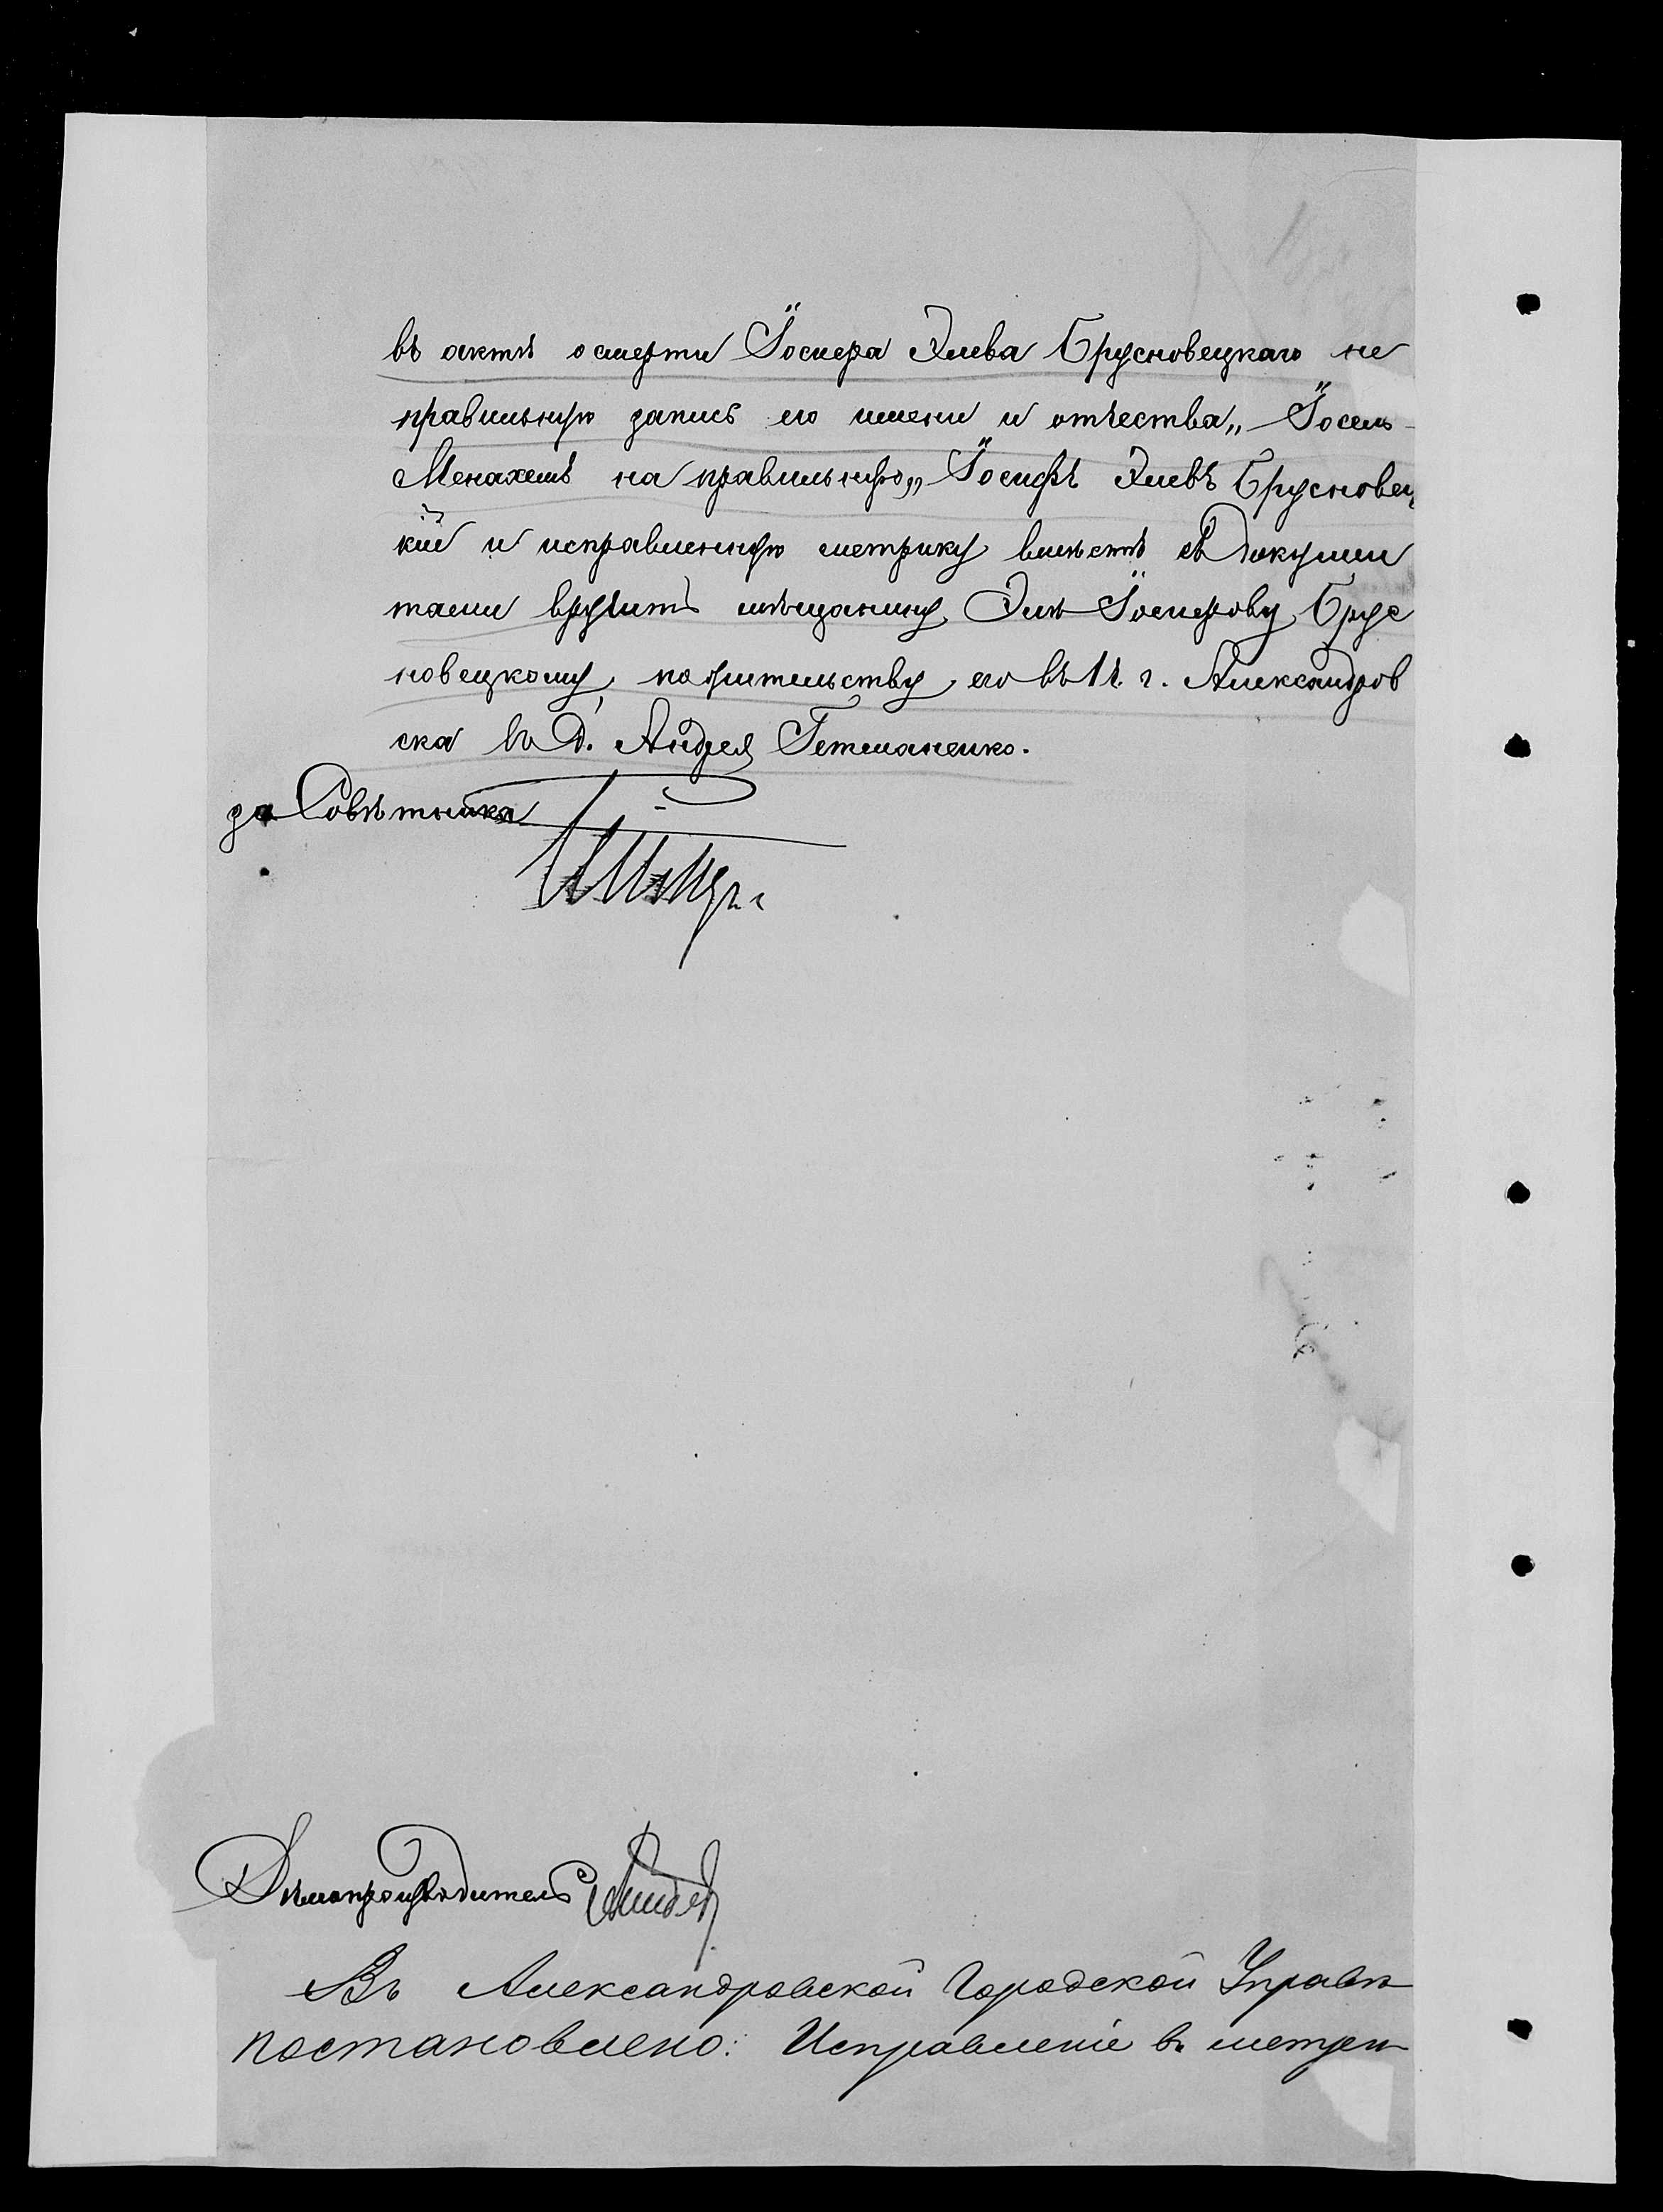 въ актѣ о смерти Іосифа Элева Брусновецкаго не
правильную запись его имени и отчества „Іосель-
Менахемъ на правильную „Іосифъ Элевъ Брусновец
кій и исправленную метрику вмѣстѣ съ докумен
тами вручить мѣщанину Элѣ Іосифову Брус
новецкому, по жительству его въ 1 ч. г. Александров
ска въ д. Андрея Гетманенко.
за Совѣтника
Дѣлопроизводитель
Въ Александровской Городской Управѣ
постановлено: Исправленіе въ метри